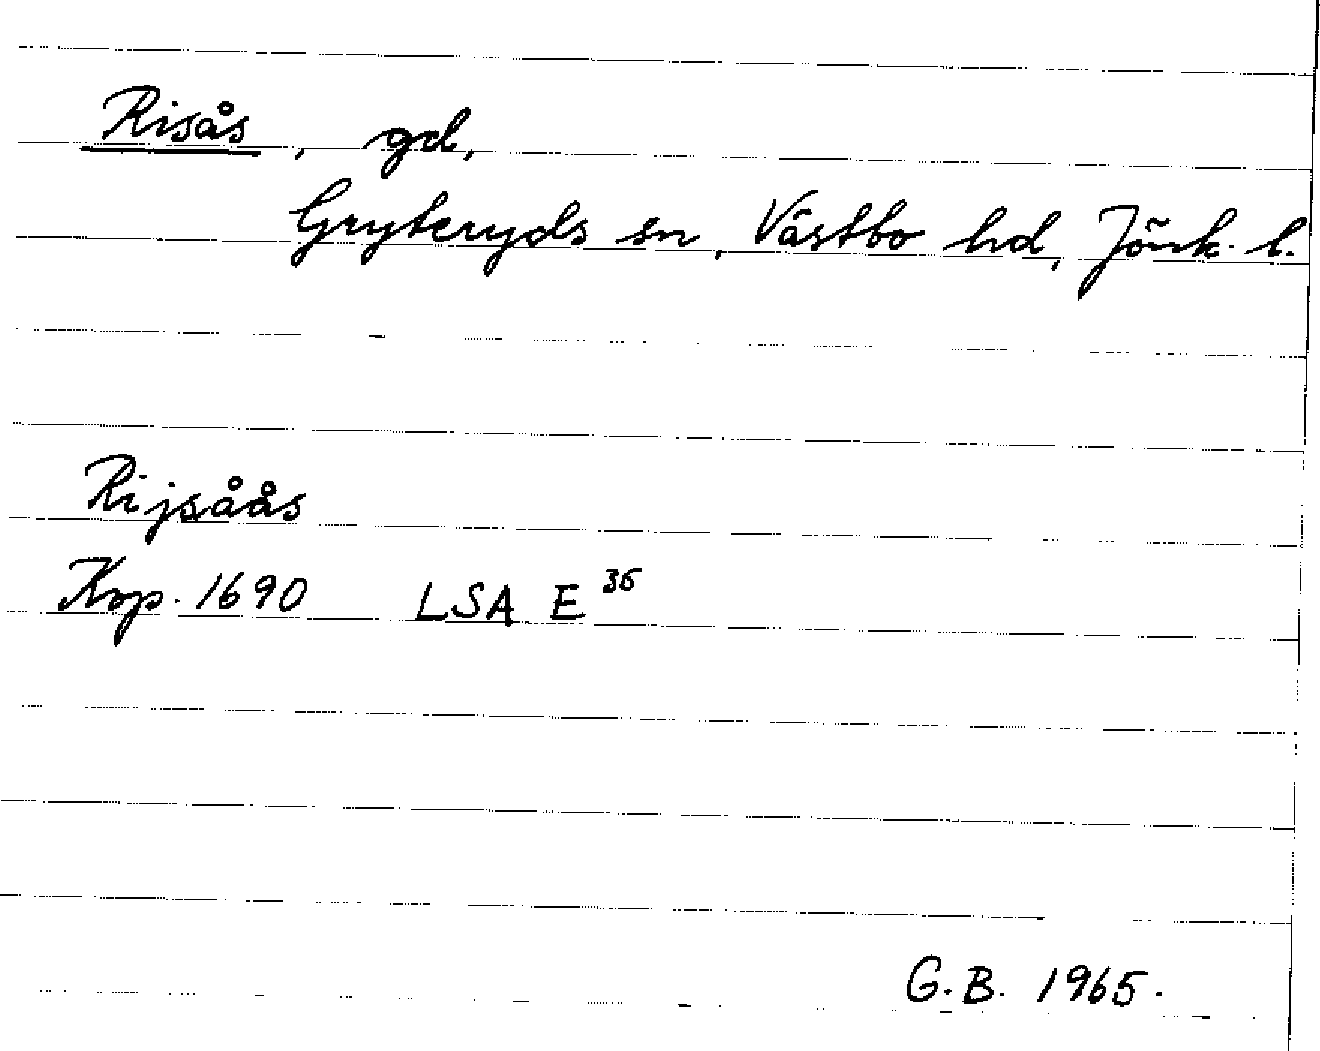 Risås, gd,
Gryteryds sn, Västbo hd, Jönk. l.
Rijsåås
Kop. 1690 LSA E 36
G.B. 1965.